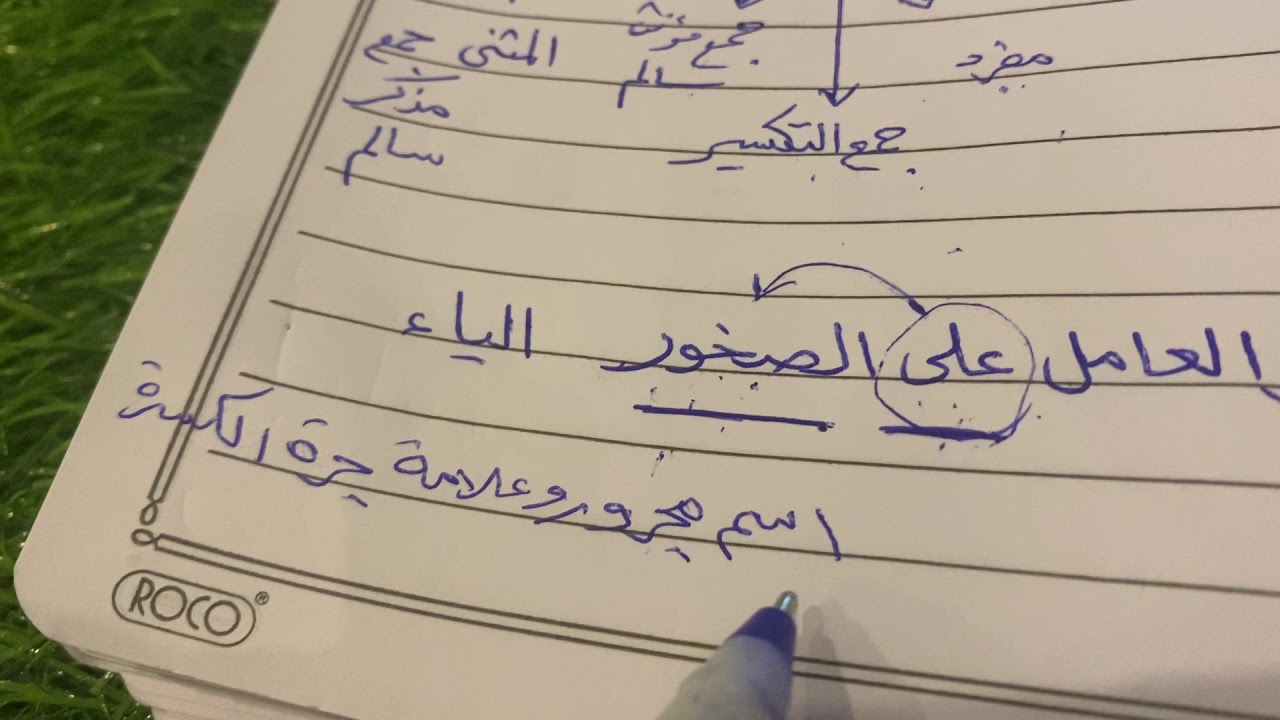 مفرد جمع مؤنث سالم المثنى جمع مذكر سالم
جمع التكسير
العامل على الصخور الياء
اسم مجرور وعلامة جرة الكسرة
ROCO